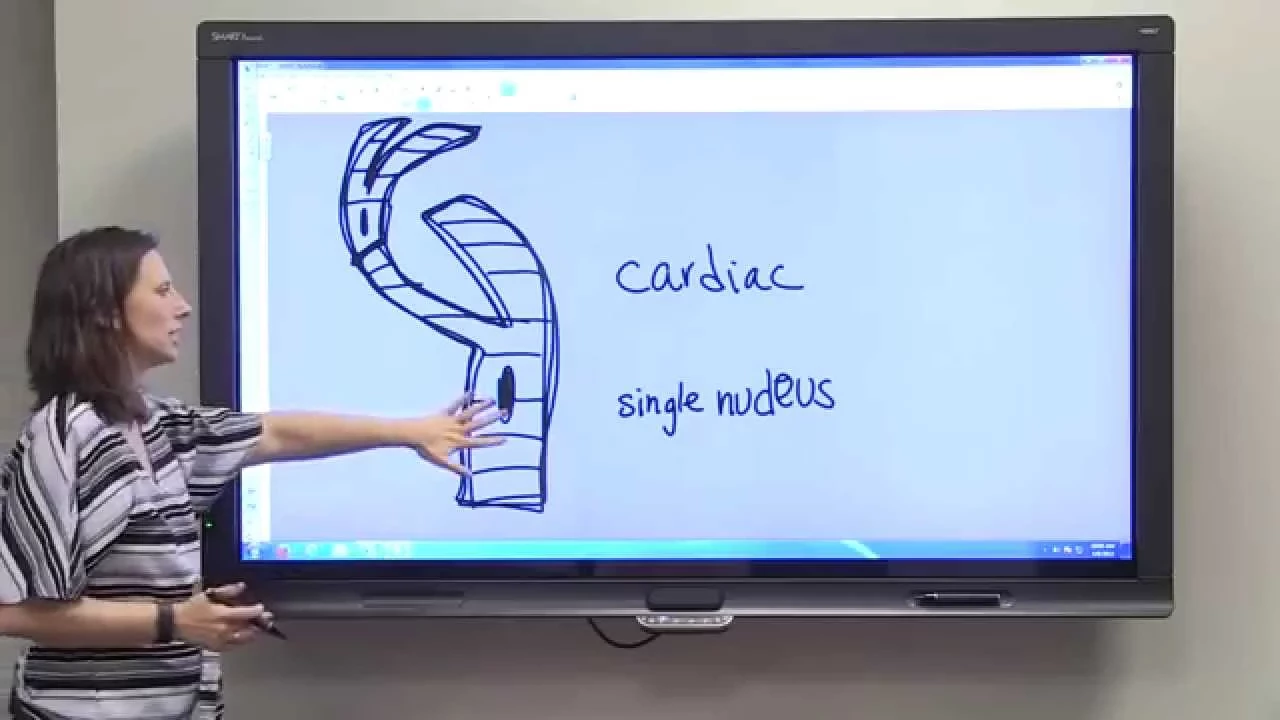 SMART
cardiac
single nucleus